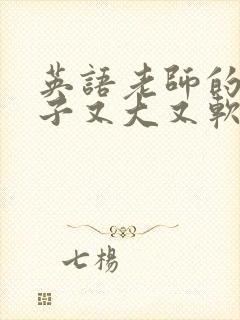 英語老師的
子又大又軟
七楊